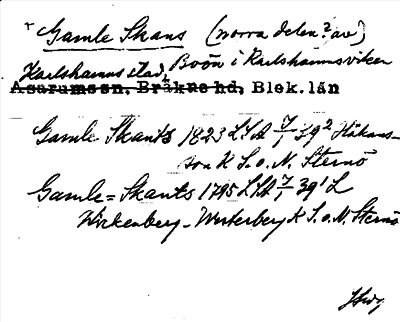 + Gamle Skans (norra delen? av)
Karlshamns stad, Boön i Karlshamnsviken
Asarumssn, Bräkne hd, Blek.län
Gamle Skants 1823 LSA 7/1 39² Håkans-
son K S.o.N. Sternö
Gamle=Skants 1795 LSA 7/1 39¹ L
Wickenberg - Westerberg K S.o.N. Sternö